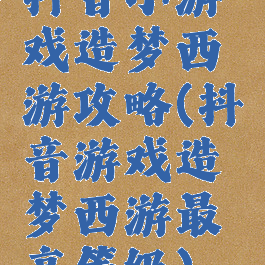 抖音小游
戏造梦西
游攻略(抖
音游戏造
梦西游最
高等级)